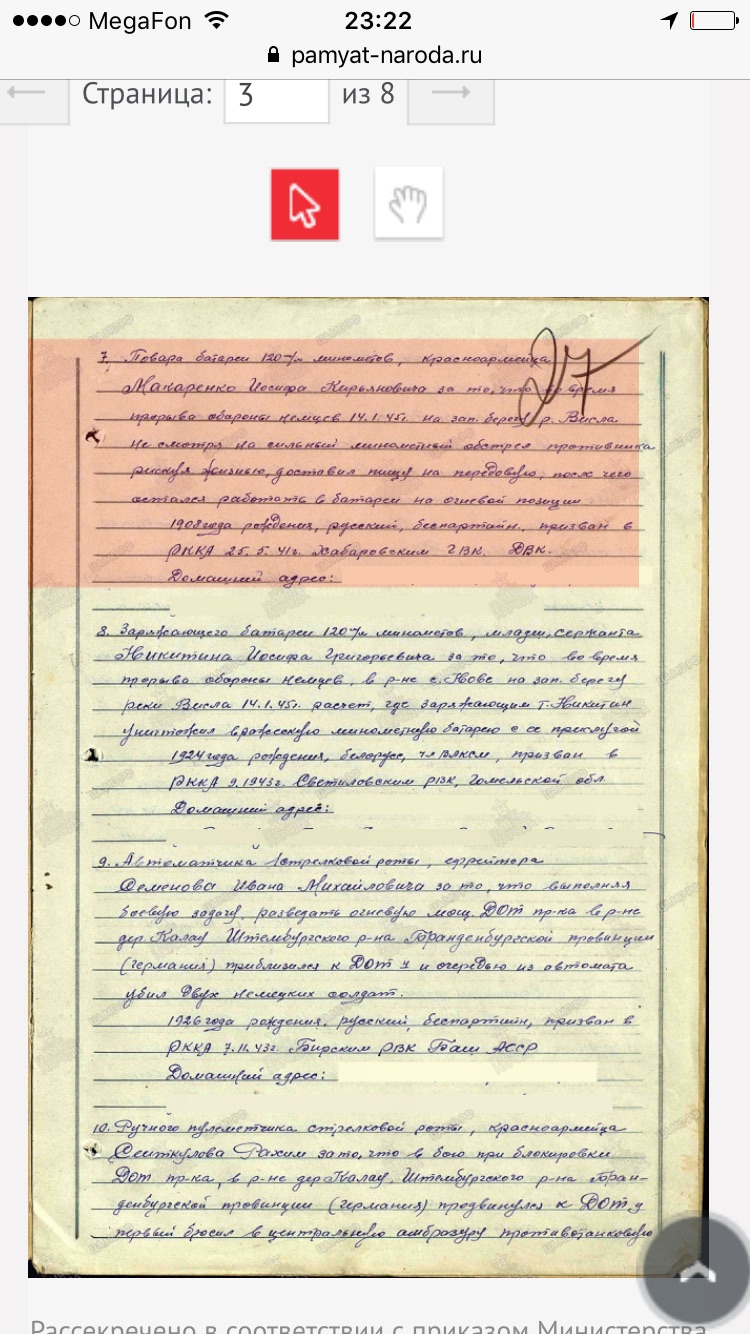 MegaFon 23:22
pamyat-naroda.ru
Страница: 3 из 8
27
7. Повара батареи 120 м/м минометов, красноармейца
Макаренко Иосифа Кирьяновича за то, что во время
прорыва обороны немцев 14.1.45г. на зап. берегу р. Висла
не смотря на сильный минометный обстрел противника
рискуя жизнью, доставил пищу на передовую, после чего
остался работать в батареи на огневой позиции
1908 года рождения, русский, беспартийн. призван в
РККА 25.5.41г. Хабаровским ГВК. ДВК.
Домашний адрес:
8. Заряжающего батареи 120 м/м минометов, младш. сержанта
Никитина Иосифа Григорьевича за то, что во время
прорыва обороны немцев, в р-не с. Нове на зап. берегу
реки Висла 14.1.45г. расчет, где заряжающим т. Никитин
уничтожил вражескую минометную батарею с ее прислугой
1924 года рождения, белорусс, чл ВЛКСМ, призван в
РККА 9.1943г. Светиловским РВК, Гомельской обл.
Домашний адрес:
9. Автоматчика 1 стрелковой роты, ефрейтора
Семенова Ивана Михайловича за то, что выполняя
боевую задачу, разведать огневую мощ. ДОТ пр-ка в р-не
дер Калау Штембургского р-на Бранденбургской провинции
(германия) приблизился к ДОТ у и очередью из автомата
убил двух немецких солдат.
1926 года рождения, русский, беспартийн, призван в
РККА 7.11.43г. Бирским РВК Баш АССР
Домашний адрес:
10. Ручного пулеметчика стрелковой роты, красноармейца
Сеиткулова Рахим за то, что в бою при блокировки
ДОТ пр-ка, в р-не дер Калау, Штембургского р-на Бран-
денбургской провинции (германия) продвинулся к ДОТ у
первый бросил в центральную амбразуру противотанковую
Рассекречено в соответствии с приказом Министерства